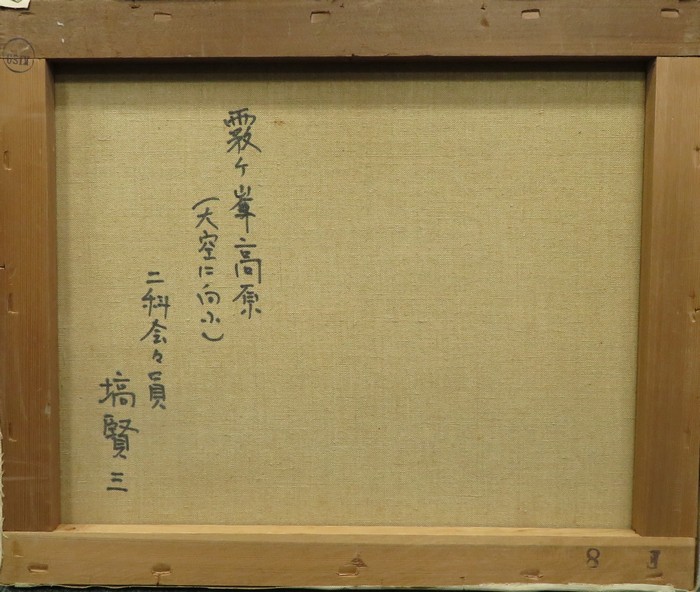 霧ケ峯高原
(大空に向ふ)
二科会々員
塙賢三
8 F